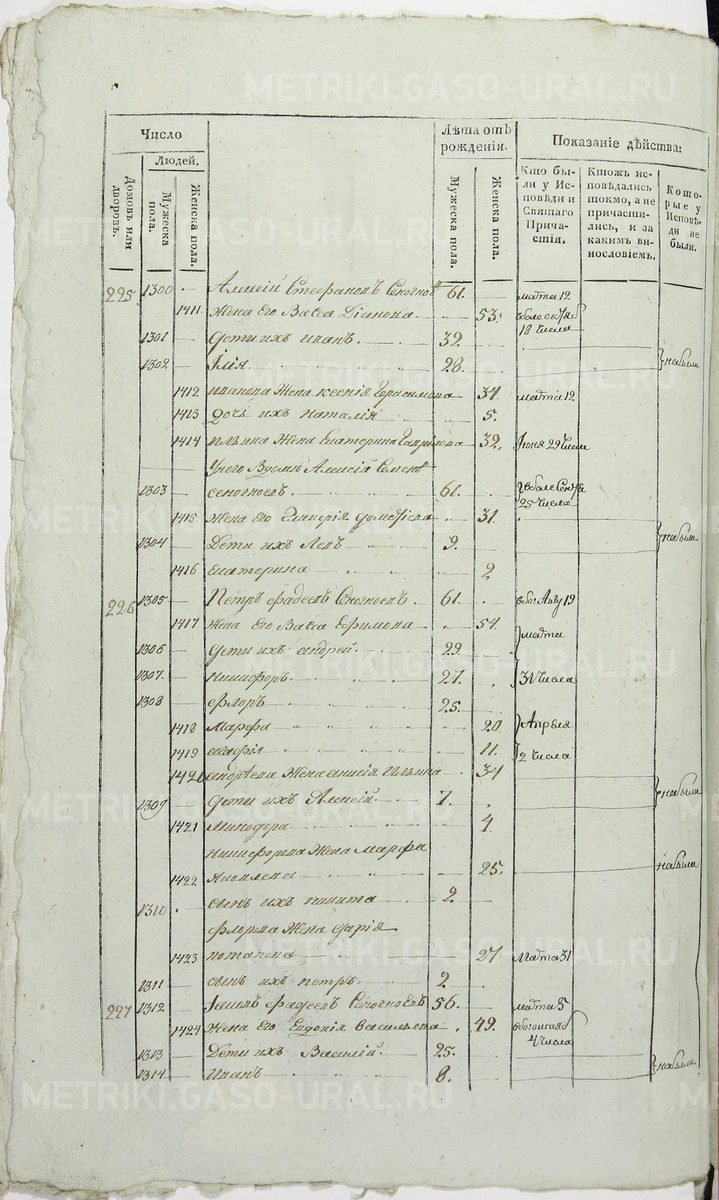 METRIKI.GASO-URAL.RU
Число
Людей.
Домовъ или дворовъ.
Мужеска пола.
Женска пола.
Лѣта отъ рожденія.
Мужеска пола.
Женска пола.
Показаніе дѣйства:
Кто были у Исповѣди и Святаго Причастія.
Ктожъ исповѣдались токмо, а не причастились, и за какимъ винословіемъ.
Которые у Исповѣди не были.
225 1300 Алексій Стефановъ 61. марта 12
1411 Жена Его Васса 53.
18 числа
1301 Дети ихъ Иванъ 32.
1302 Илія 28. небыли
1412 Иванова Жена Ксенія Герасимова 34 марта 12
1413 Дочь ихъ Наталія 5.
1414 Ильина Жена Екатерина Гаврилова 32. Июня 29 числа
Алексій
1303 61.
25 числа
1415 Жена Его 31.
1304 Дети ихъ Левъ 9. небыли
1416 Екатерина 2
226 1305 Петръ Фадеевъ 61. 19
1417 Жена Его Васса Ефимова 54. марта
1306 Дети ихъ Андрей 29
1307 Никифоръ 27. 31 числа
1308 Флоръ 25.
1418 Марфа 20 Апреля
1419 11. 2 числа
1420 Андреева Жена Анисія Ильина 34
1309 Дети ихъ Алексій 7. небыли
1421 Минодора 4
Никифорова Жена Марфа
1422 Яковлева 25. небыли
1310 сынъ ихъ Никита 2
Флорова Жена Дарія
1423 Потапова 27 Марта 31
1311 сынъ ихъ Петръ 2
227 1312 Фадеевъ 56. марта 5
1424 Жена Его Евдокія Васильева 49.
4 числа
1313 Дети ихъ Василій 25.
1314 Иванъ 8. небыли
METRIKI.GASO-URAL.RU